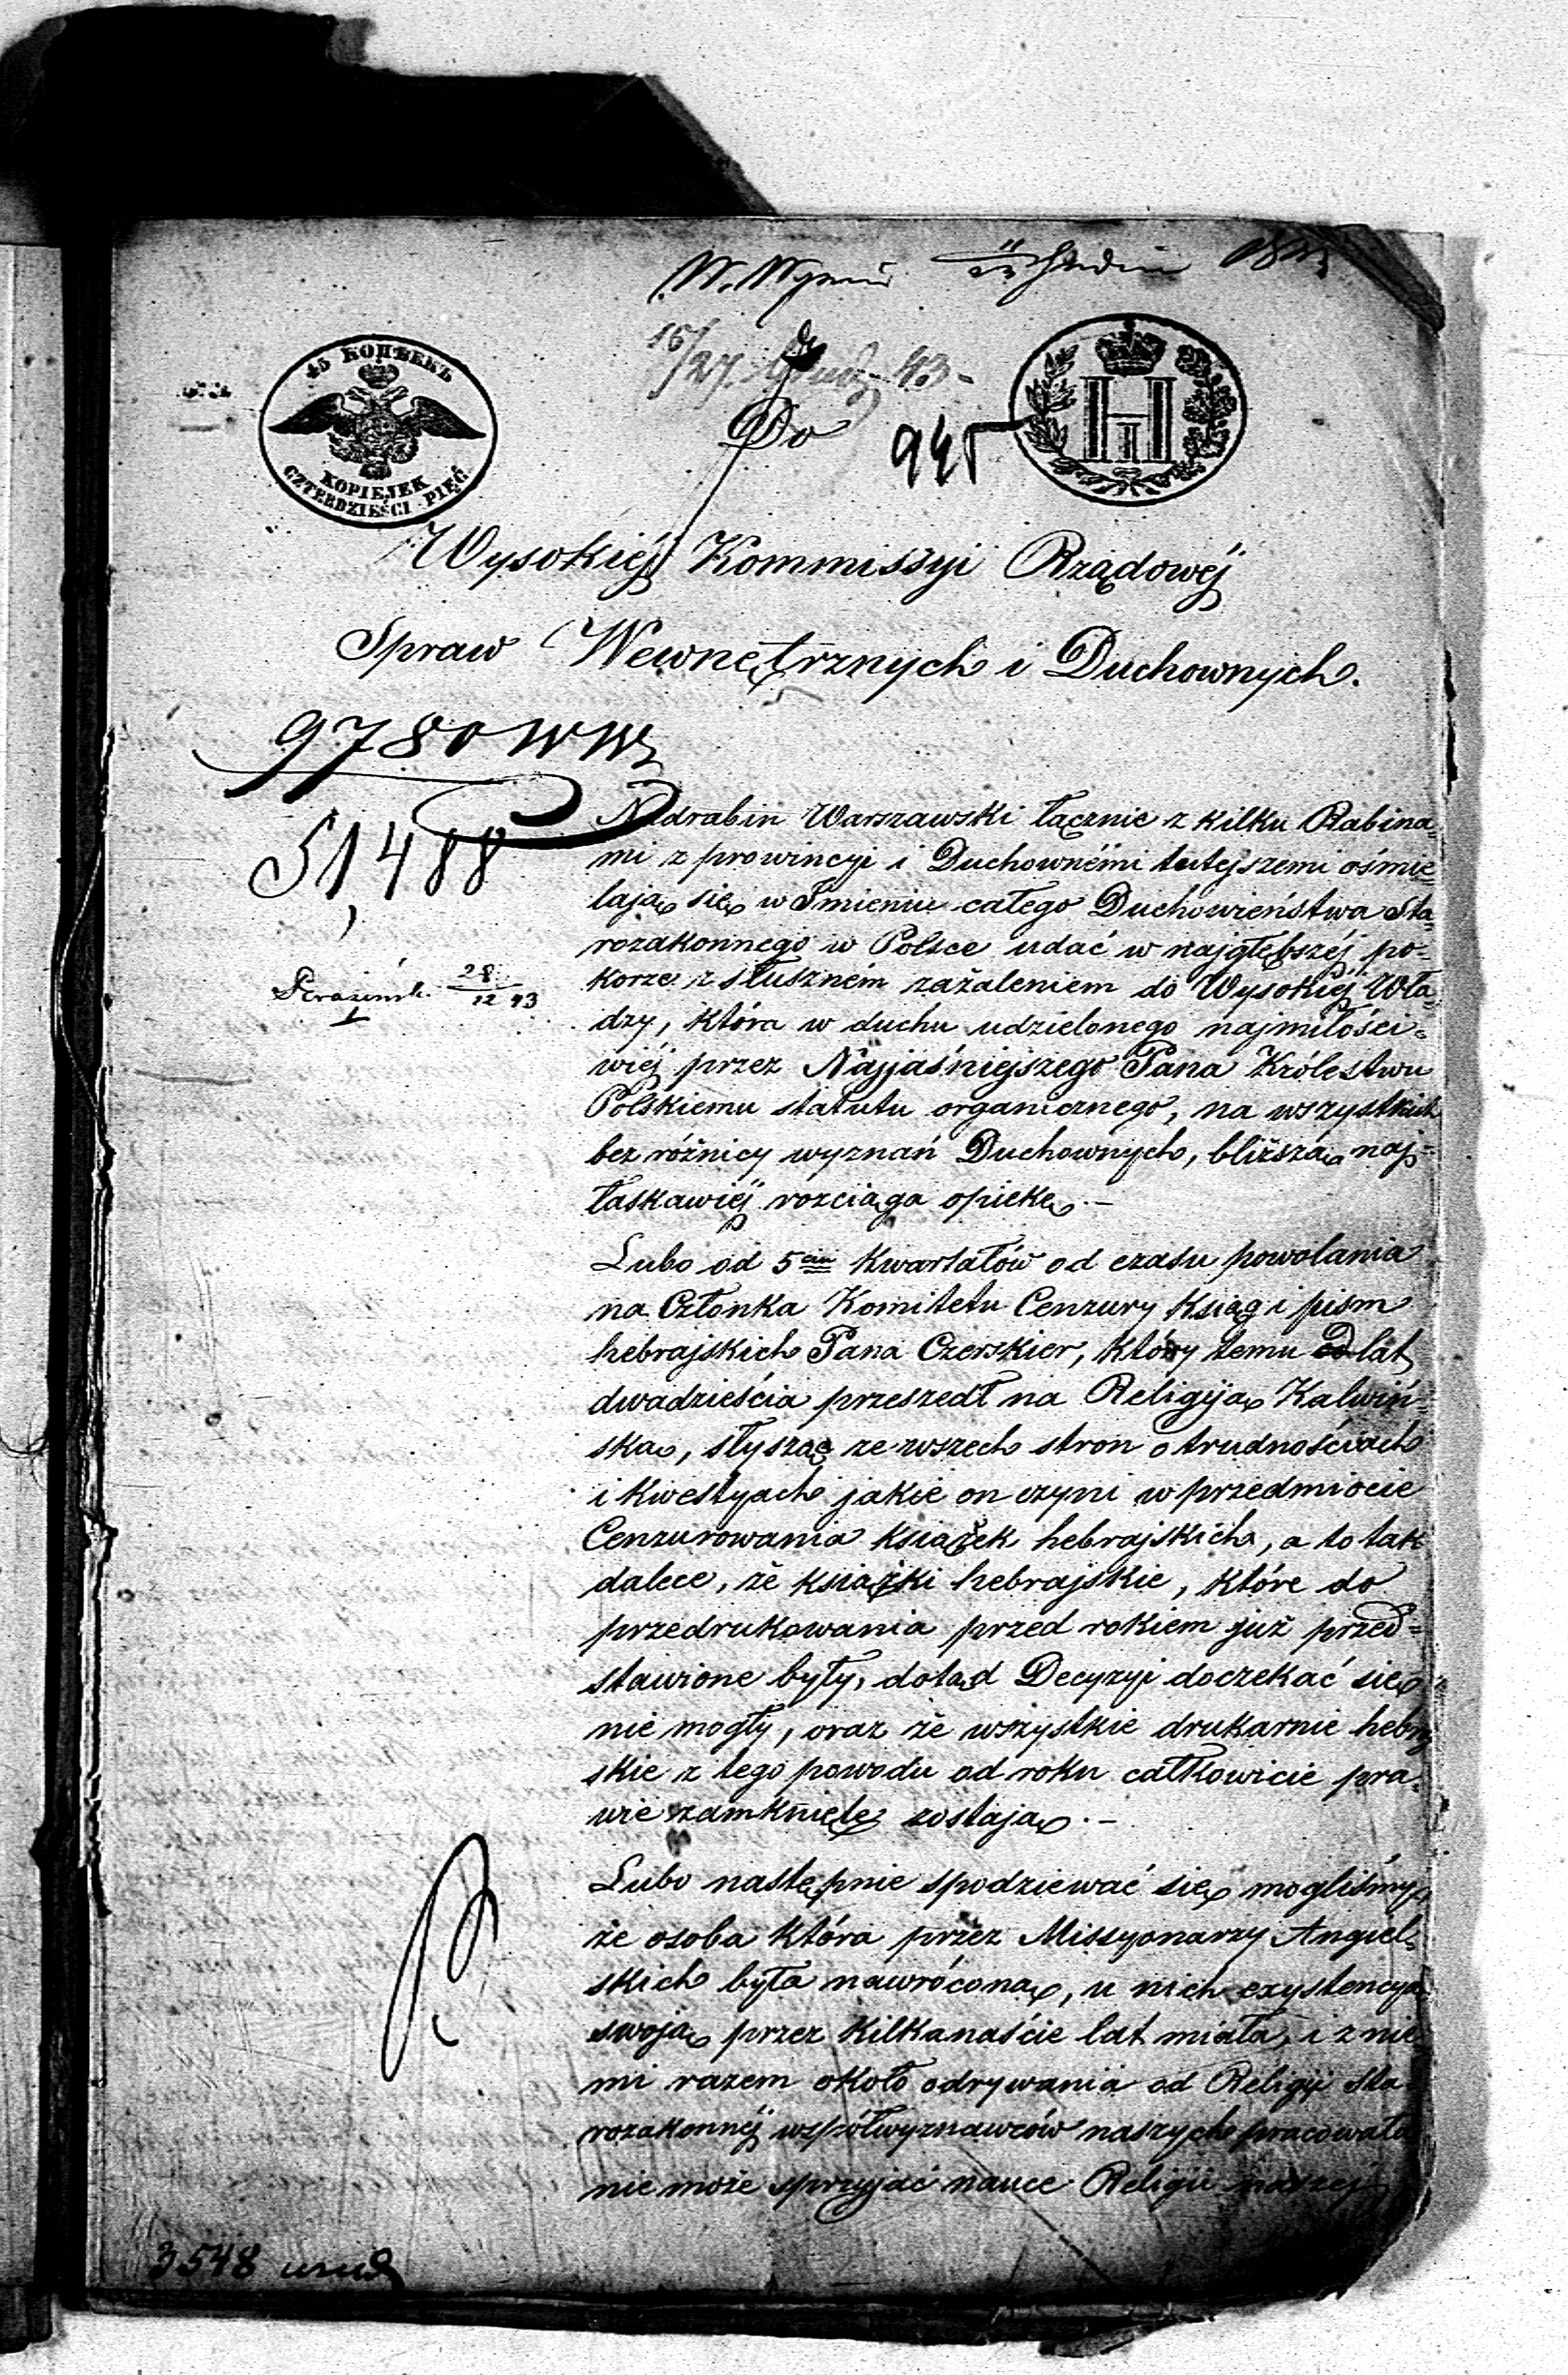 15/27 Grudz. 43 -
45 КОПѢЕКЪ
KOPIEJEK
CZTERDZIEŚCI PIĘĆ
Do
945
H I
Wysokiéj Kommissyi Rządowéj
Spraw Wewnętrznych i Duchownych.
9780 WW
51,488
28/12 43
Nadrabin Warszawski łącznie z kilku Rabina=
mi z prowincyi i Duchownémi tutejszemi ośmie=
lają się w Imieniu całego Duchowieństwa Sta=
rozakonnego w Polsce udać w najgłębszéj po=
korze z słuszném zażaleniem do Wysokiéj Wła=
dzy, która w duchu udzielonego najmiłości=
wiéj przez Najjaśniejszego Pana Królestwu
Polskiemu statutu organicznego, na wszystkich
bez różnicy wyznań Duchownych, bliższą naj=
łaskawiéj rozciąga opiekę. -
Lubo od 5ciu Kwartałów od czasu powołania
na Członka Komitetu Cenzury Ksiąg i pism
hebrajskich Pana Czerskier, który temu lat
dwadzieścia przeszedł na Religiją Kalwiń=
ską, słysząc ze wszech stron o trudnościach
i kwestyach jakie on czyni w przedmiocie
Cenzurowania książek hebrajskich, a to tak
dalece, że książki hebrajskie, które do
przedrukowania przed rokiem już przed=
stawione były, dotąd Decyzyi doczekać się
nie mogły, oraz że wszystkie drukarnie hebraj
skie z tego powodu od roku całkowicie pra=
wie zamknięte zostają. -
Lubo następnie spodziewać się mogliśmy,
że osoba która przez Missyonarzy Angiel=
skich była nawróconą, u nich exystencyą
swoją przez kilkanaście lat miała, i z nie
mi razem około odrywania od Religij sta=
rozakonnéj współwyznawców naszych pracowała
nie może sprzyjać nauce Religii naszej
3548